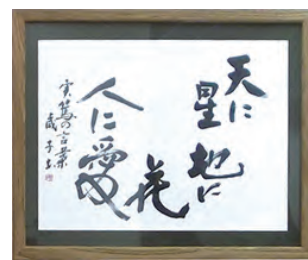 天に
星
地に
花
人に愛
実篤の言葉